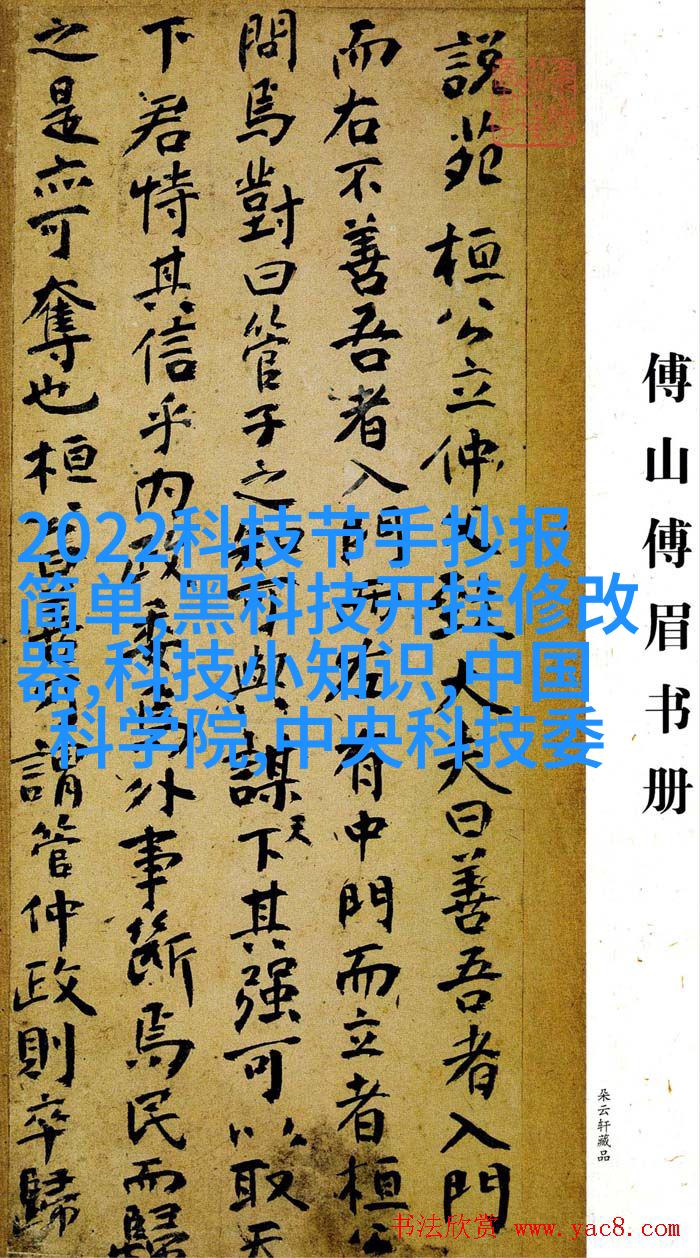 說苑 桓公立仲父致大夫曰善吾者入門
而右不善吾者入門而左有中門而立者桓公
問焉對曰管子之知可與謀天下其強可以取天
下君恃其信乎内政委焉外事斷焉民而歸
之是亦可奪也桓公曰善乃謂管仲政則卒歸
傅山傅眉书册
朵云轩藏品
2022科技节手抄报
简单,黑科技开挂修改
器,科技小知识,中国
科学院,中央科技委
书法欣赏 www.yac8.com